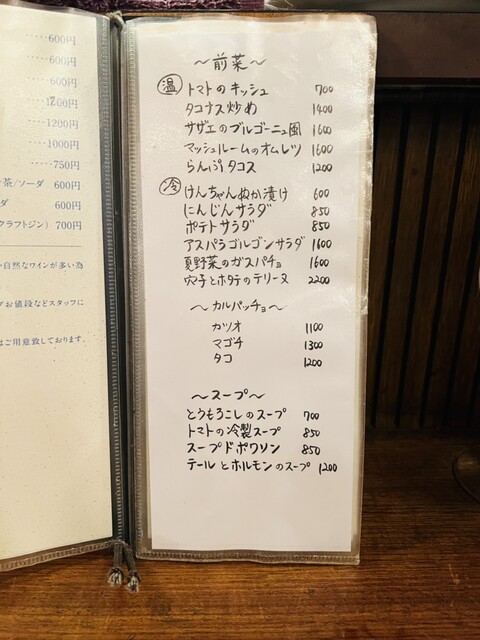 ·····600円
·····600円
····600円
····1200円
····1200円
····1000円
·····750円
茶/ソーダ 600円
ダ 600円
クラフトジン) 700円
自然なワインが多い為
お値段などスタッフに
はご用意致しております。
〜前菜〜
温 トマトのキッシュ 700
タコナス炒め 1400
サザエのブルゴーニュ風 1600
マッシュルームのオムレツ 1600
らんぷタコス 1200
冷 けんちゃんぬか漬け 600
にんじんサラダ 850
ポテトサラダ 850
アスパラゴルゴンサラダ 1600
夏野菜のガスパチョ 1600
穴子とホタテのテリーヌ 2200
〜カルパッチョ〜
カツオ 1100
マゴチ 1300
タコ 1200
〜スープ〜
とうもろこしのスープ 700
トマトの冷製スープ 850
スープドポワソン 850
テールとホルモンのスープ 1200